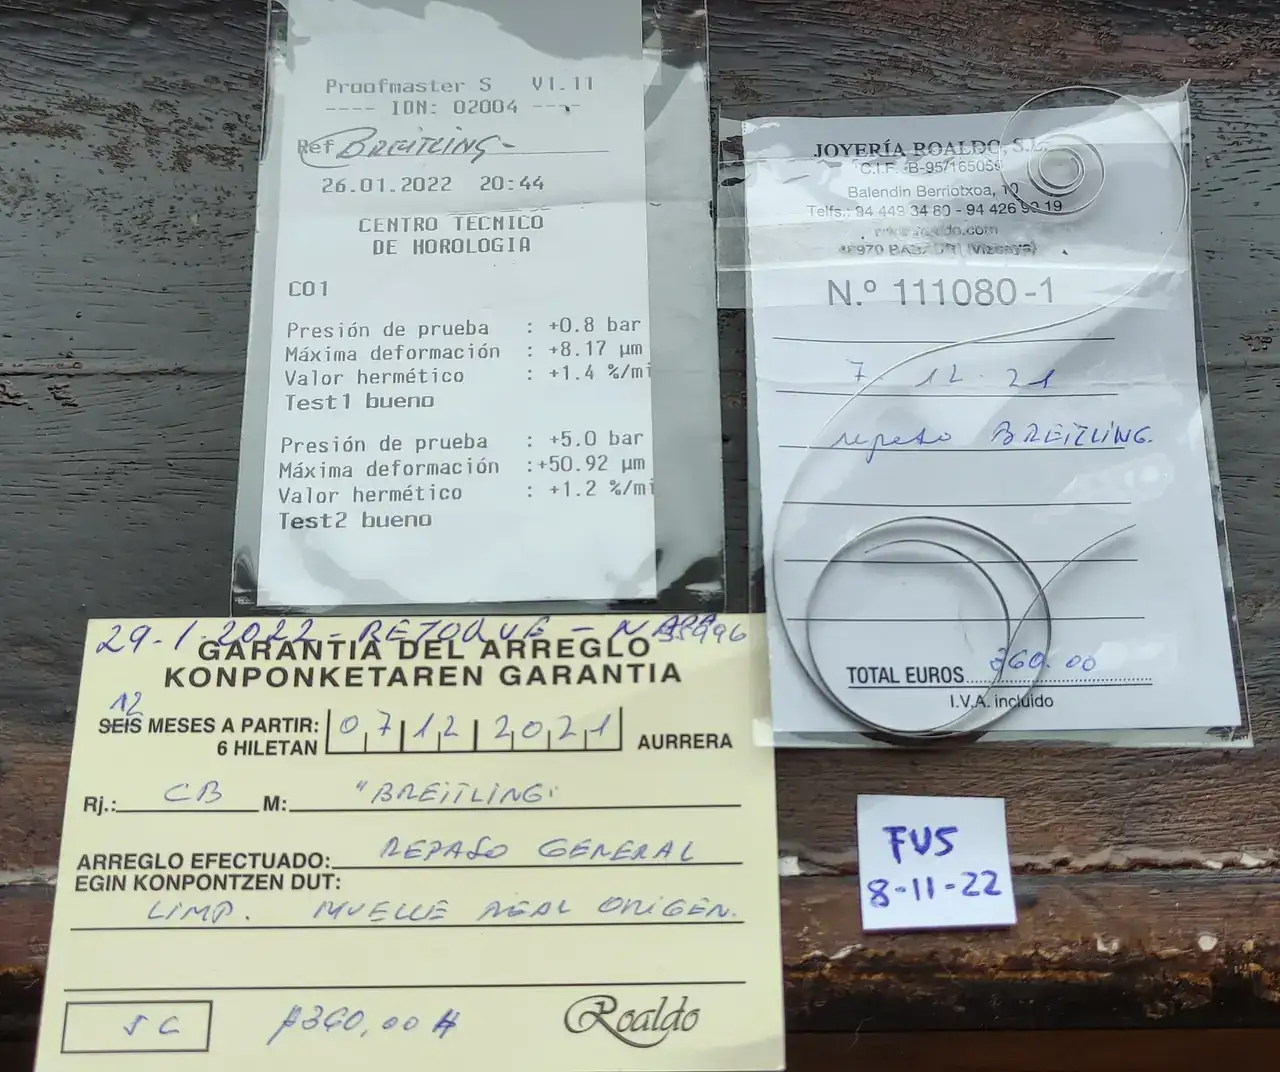 Proofmaster S V1.11
---- ION: 02004 ----
Ref BREITLING-
26.01.2022 20:44
CENTRO TECNICO
DE HOROLOGIA
CO1
Presión de prueba : +0.8 bar
Máxima deformación : +8.17 µm
Valor hermético : +1.4 %/mi
Test1 bueno
Presión de prueba : +5.0 bar
Máxima deformación :+50.92 µm
Valor hermético : +1.2 %/mi
Test2 bueno
JOYERÍA ROALDO, S.L.
C.I.F. B-95/165055
Balendin Berriotxoa, 10
Telfs.: 94 449 34 80 - 94 426 99 19
48970 (Vizcaya)
N.º 111080-1
7. 12. 21
repaso BREITLING.
TOTAL EUROS 360.00
I.V.A. incluido
29-1-2022- RETOQUE -
GARANTIA DEL ARREGLO
KONPONKETAREN GARANTIA
12
SEIS MESES A PARTIR: 07 12 2021
6 HILETAN AURRERA
Rj.: CB M: "BREITLING"
ARREGLO EFECTUADO: REPASO GENERAL
EGIN KONPONTZEN DUT:
LIMP. MUELLE REAL ORIGEN.
360,00
Roaldo
FUS
8-11-22